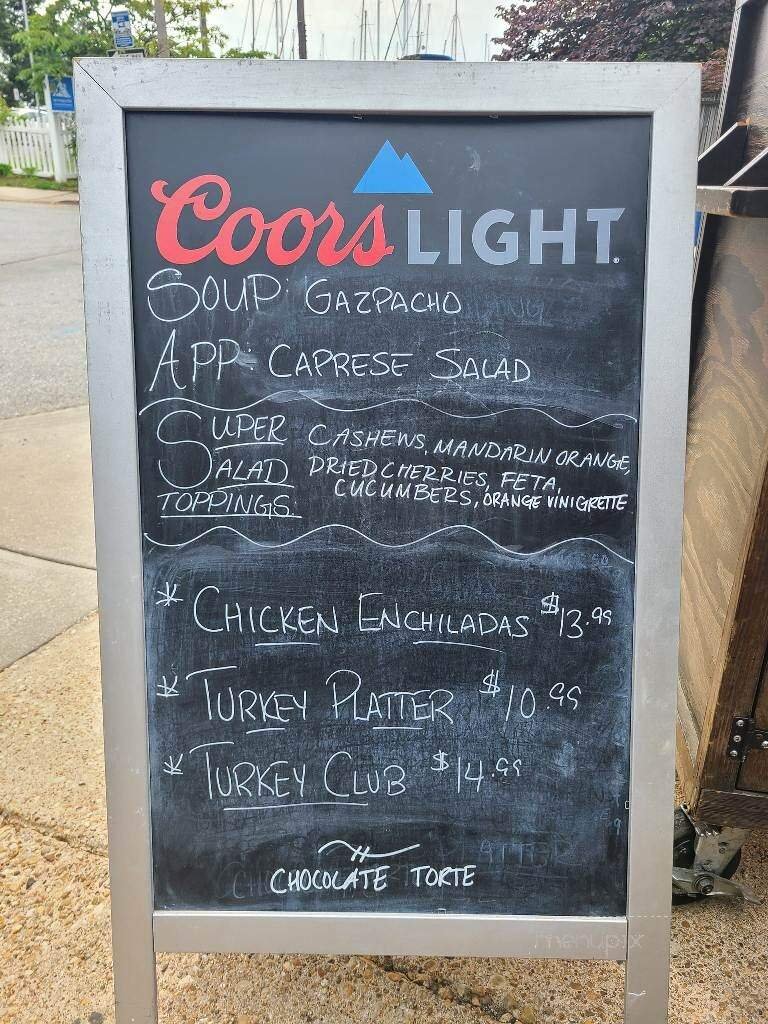 Coors LIGHT.
SOUP: GAZPACHO
APP: CAPRESE SALAD
SUPER SALAD TOPPINGS:
CASHEWS, MANDARIN ORANGE,
DRIED CHERRIES, FETA,
CUCUMBERS, ORANGE VINIGRETTE
* CHICKEN ENCHILADAS $13.99
* TURKEY PLATTER $10.99
* TURKEY CLUB $14.99
CHOCOLATE TORTE
menupix